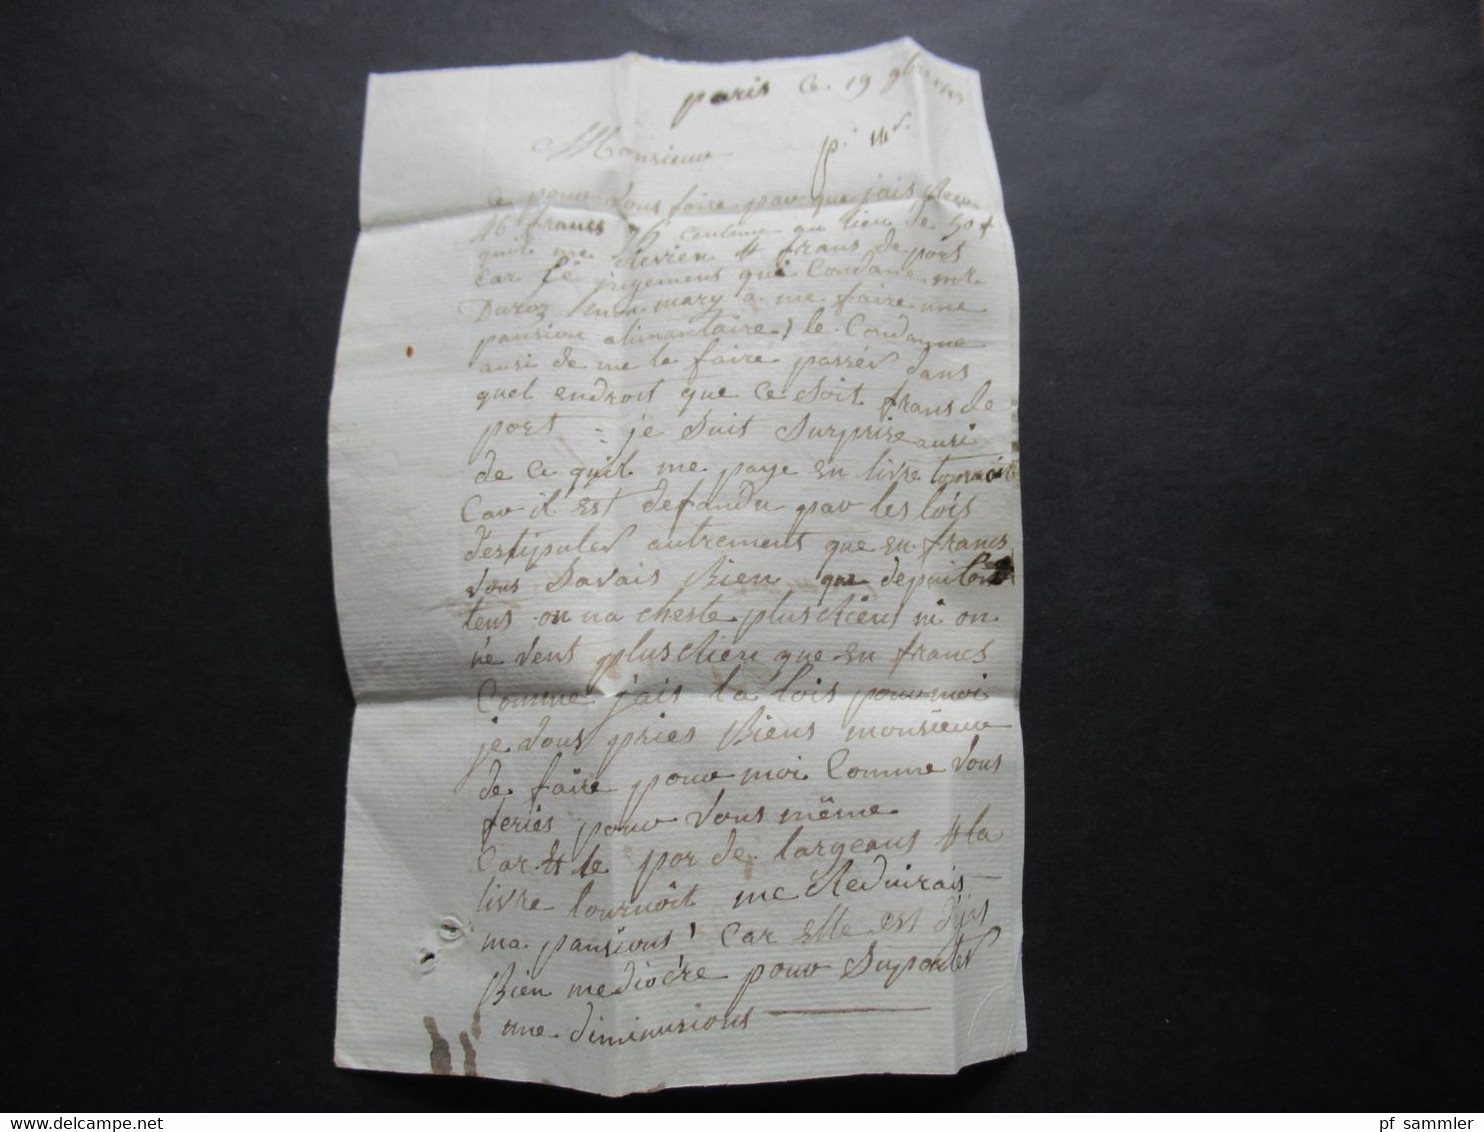 paris Ce 19 9bre
Monsieur
Ce pour vous faire par que jais Resu
46 francs 76 centime au lieu de 50 f
quil me Revien 4 frans de port
Car Le jugement qui Condane mr
Duroz mon mary a me faire une
pansion alimantaire, le Condanne
ausi de me le faire passér dans
quel endroit que Ce Soit frans de
port = je Suit Surprise ausi
de Ce quil me paye en livre tournoit
Car il est defandu par les lois
destipuler autrement que en francs
Vous Savais Bien que depuit
tens on na cheste plus Riens ni on
ne vent plus Rien que en francs
Comme jais la lois pour moi
je vous pries Biens monsieur
de faire pour moi Comme vous
feriés pour vous même
Car et le por de largeans et la
livre tournôit me Reduirais
ma pansions! Car elle est dejas
Bien mediocre pour Suporter
une diminusions
pf_sammler